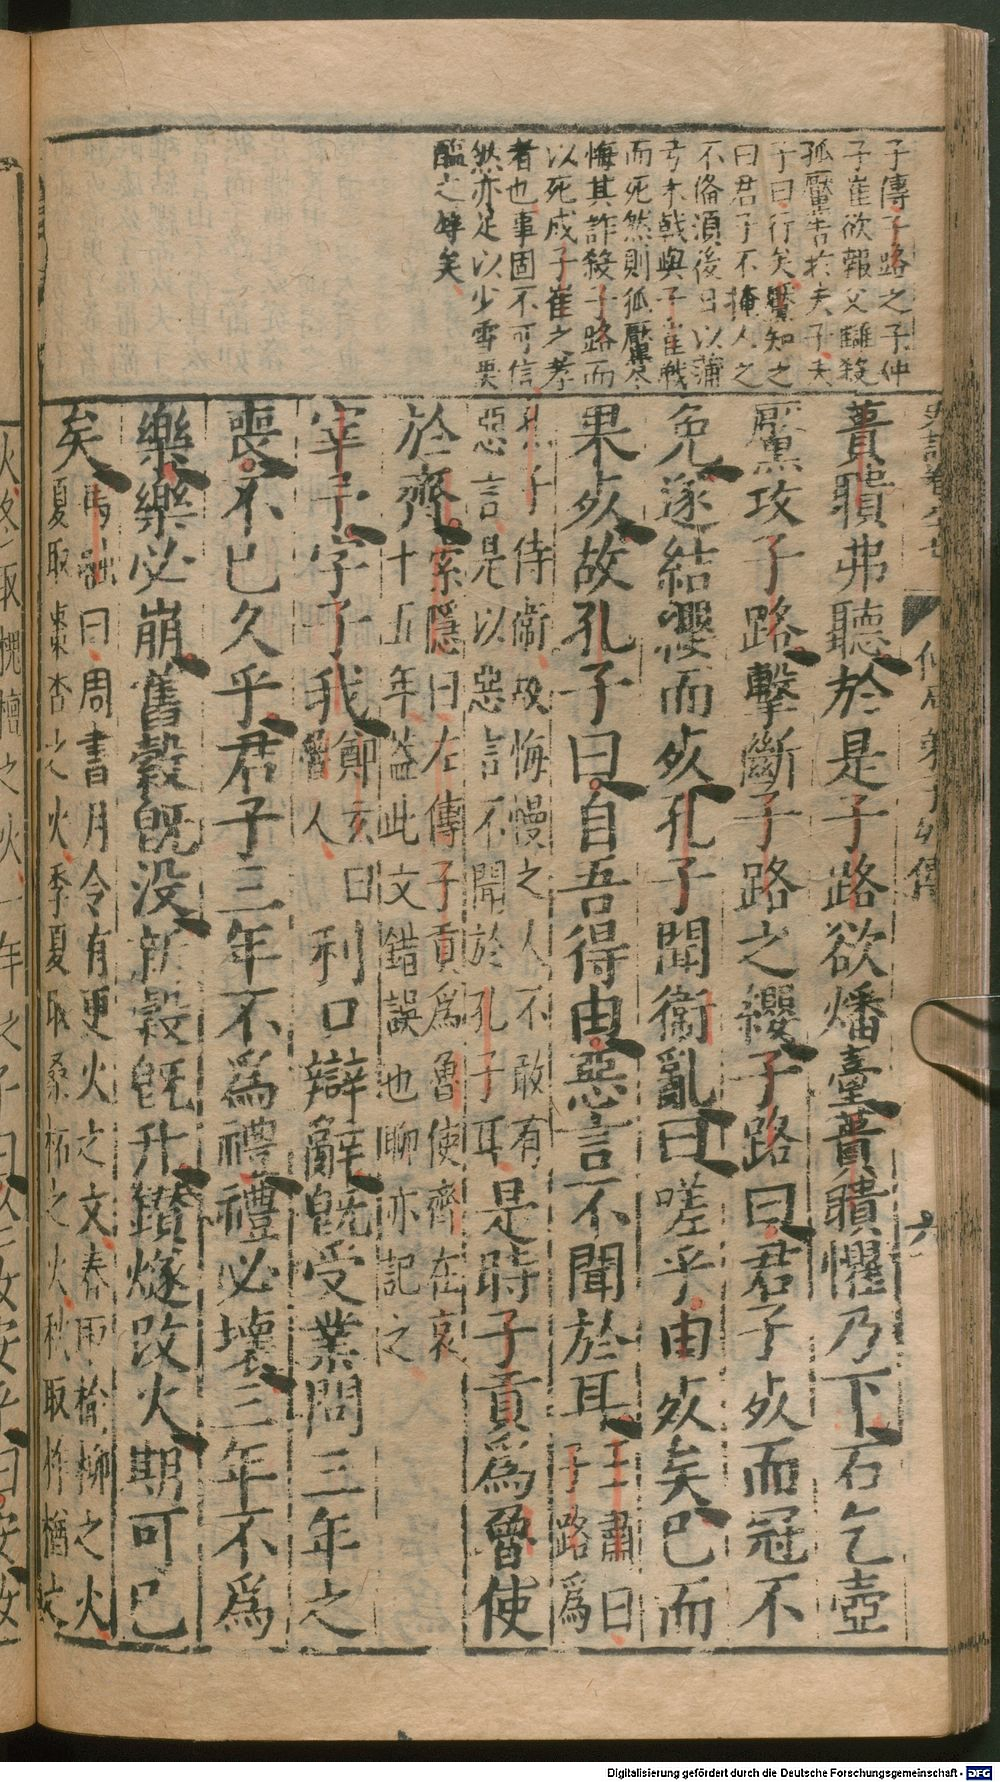 子傳子路之子仲
子崔欲報父讎殺
孤黶告於夫子夫
子曰行矣黶知之
曰君子不掩人之
不備須後日以蒲
弓木戟與子崔戰
而死然則狐黶
悔其詐殺子路而
以死成子崔之孝
者也事固不可信
然亦足以少雪
醢之
蕢聵弗聽於是子路欲燔臺蕢聵懼乃下石乞壺
黶攻子路擊斷子路之纓子路曰君子死而冠不
免遂結纓而死孔子聞衞亂曰嗟乎由死矣已而
果死故孔子曰自吾得由惡言不聞於耳
王肅曰
子路爲
孔子侍衞故侮慢之人不敢有
惡言是以惡言不聞於孔子耳
是時子貢爲魯使
於齊
索隱曰左傳子貢爲魯使齊在哀
十五年蓋此文錯誤也聊亦記之
宰予字子我
鄭玄曰
魯人
利口辯辭旣受業問三年之
喪不已久乎君子三年不爲禮禮必壞三年不爲
樂樂必崩舊穀旣没新穀旣升鑽燧改火期可已
矣
馬融曰周書月令有更火之文春取楡柳之火
夏取棗杏之火季夏取桑柘之火秋取柞楢之
史記卷六十七
仲尼弟子列傳
六
Digitalisierung gefördert durch die Deutsche Forschungsgemeinschaft - DFG